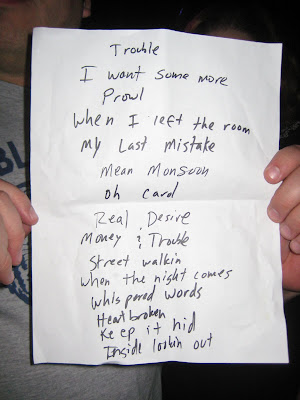 Trouble
I want some more
Prowl
When I left the room
My Last Mistake
Mean Monsoon
Oh Carol
Real Desire
Money & Trouble
Street walkin
When the night comes
Whispered words
Heartbroken
Keep it hid
Inside lookin out